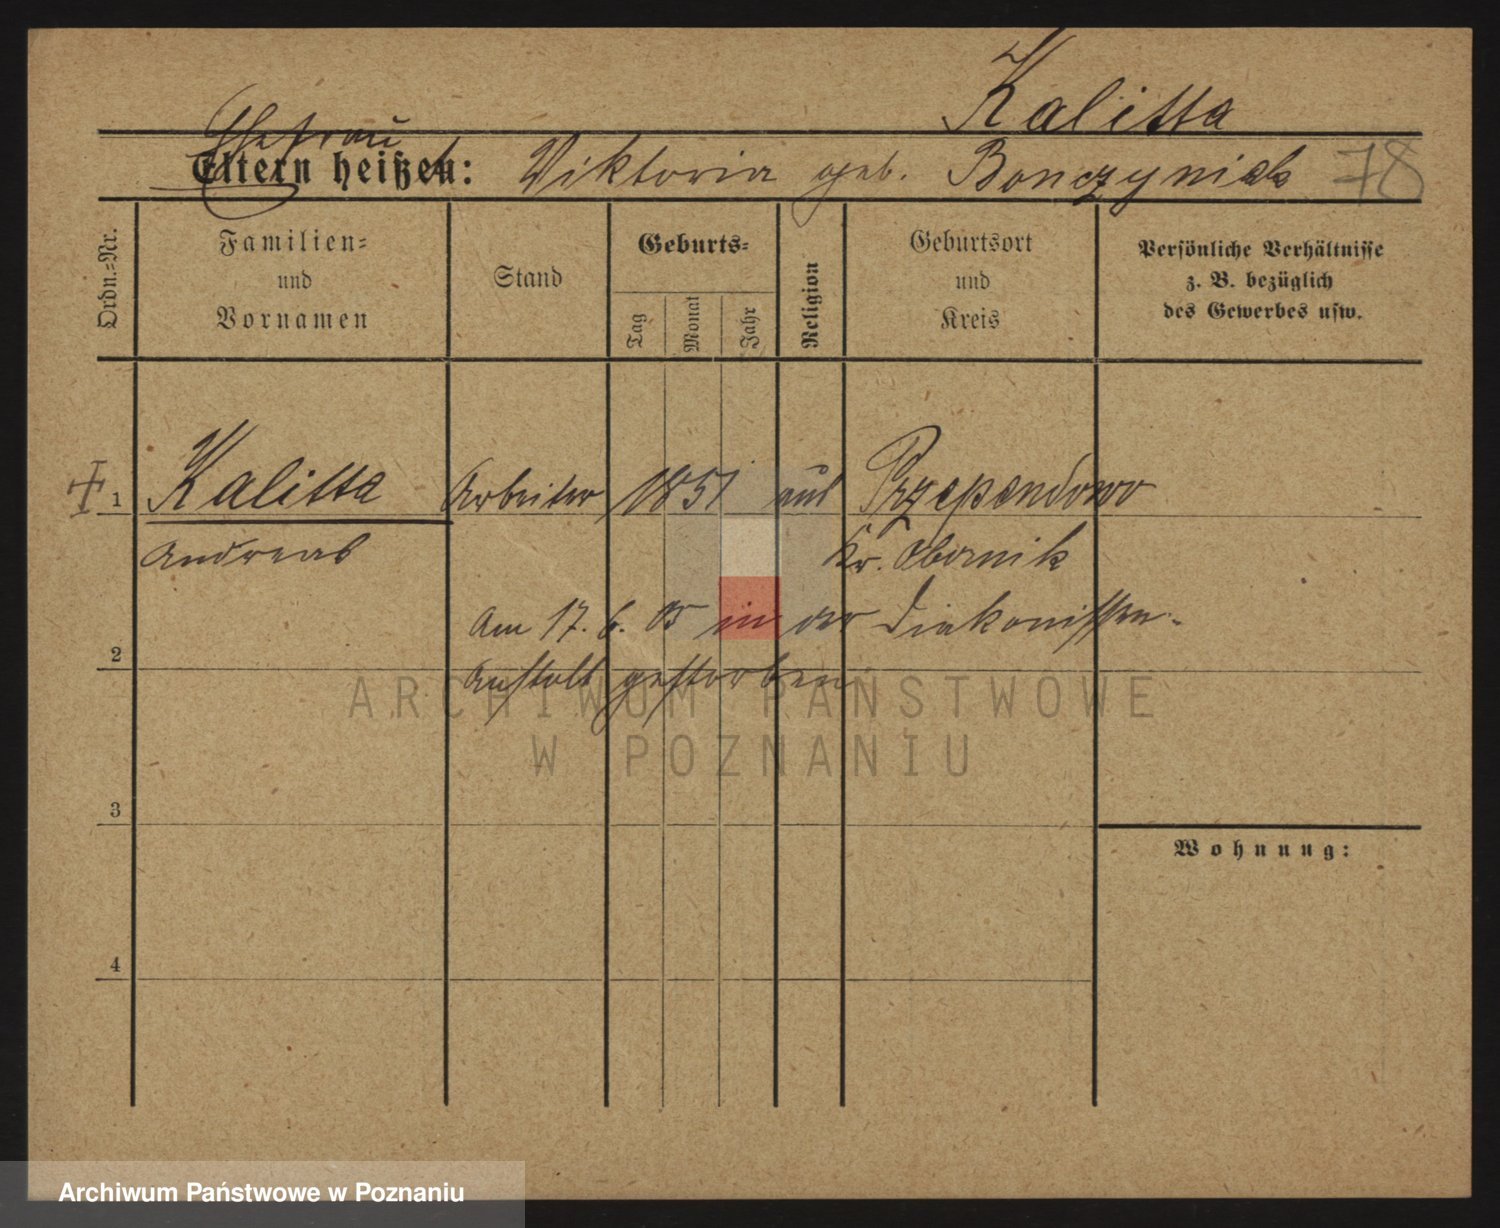 Kalitta
Ehefrau
Eltern heißen: Viktoria geb. Bonczyniak 78
Ordn.=Nr.
Familien=
und
Vornamen
Stand
Geburts=
Tag
Monat
Jahr
Religion
Geburtsort
und
Kreis
Persönliche Verhältnisse
z. B. bezüglich
des Gewerbes usw.
1 Kalitta Arbeiter 1851 aus Przependowo
Andreas Kr. Obornik
Am 17. 6. 05 in der Diakonissen-
2
Anstalt gestorben
ARCHIWUM PAŃSTWOWE
W POZNANIU
3
Wohnung:
4
Archiwum Państwowe w Poznaniu